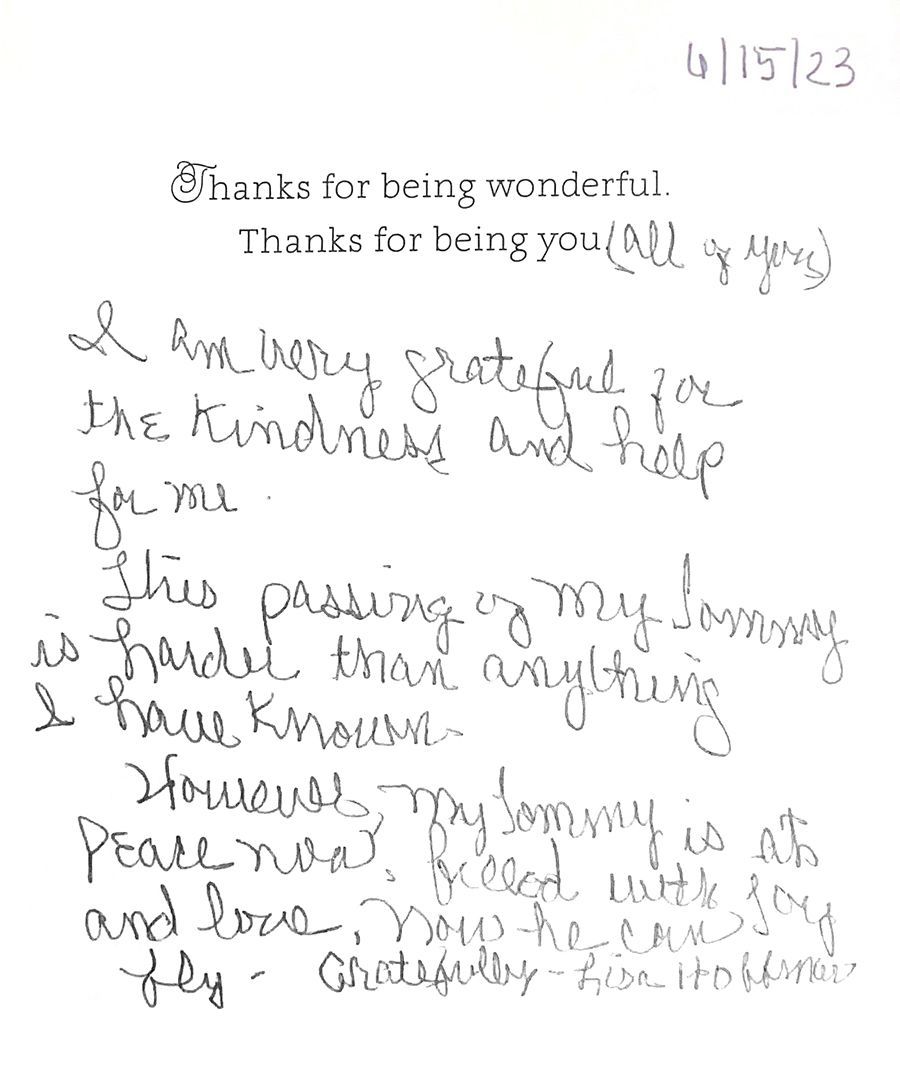 6/15/23
Thanks for being wonderful.
Thanks for being you (all of you)
I am very grateful for
the kindness and help
for me.
This passing of my Tommy
is harder than anything
I have known.
However, my Tommy is at
Peace now, filled with Joy
and love, now he can
fly - Gratefully - Lisa Hoffman